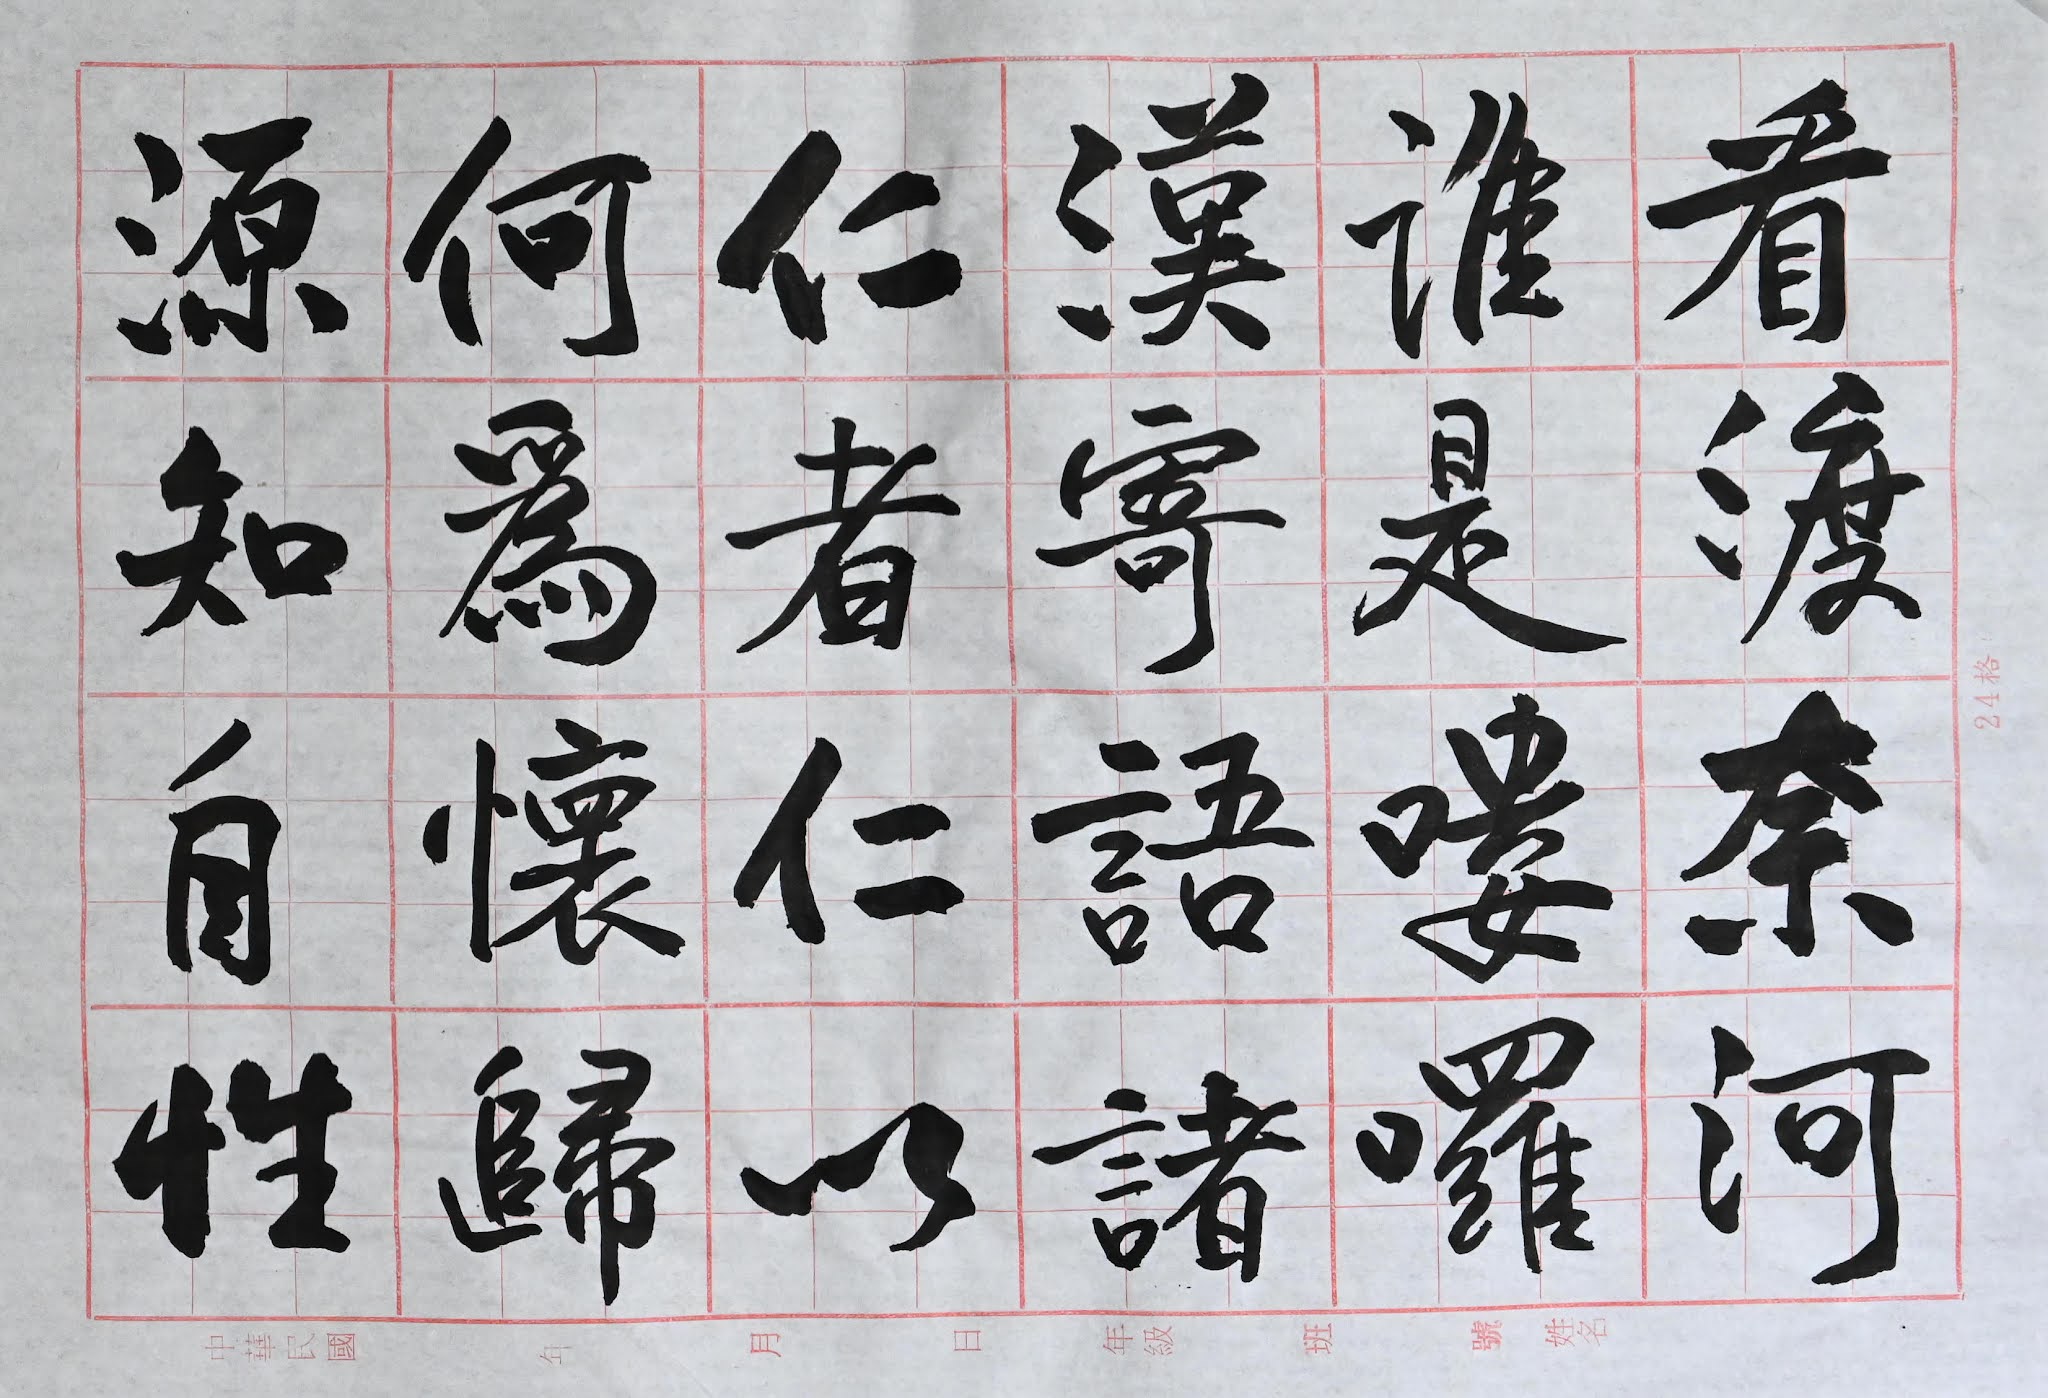 看渡奈河
誰是嘍囉
漢寄語諸
仁者仁以
何為懷歸
源知自性
24格
中華民國 年 月 日 年級 班 號 姓名